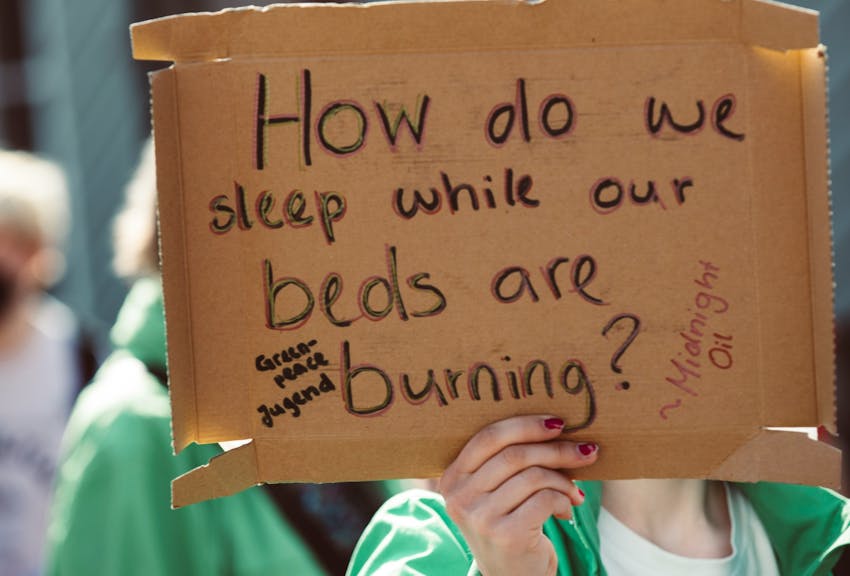 How do we
sleep while our
beds are
burning?
Green-
peace
Jugend
~ Midnight
Oil